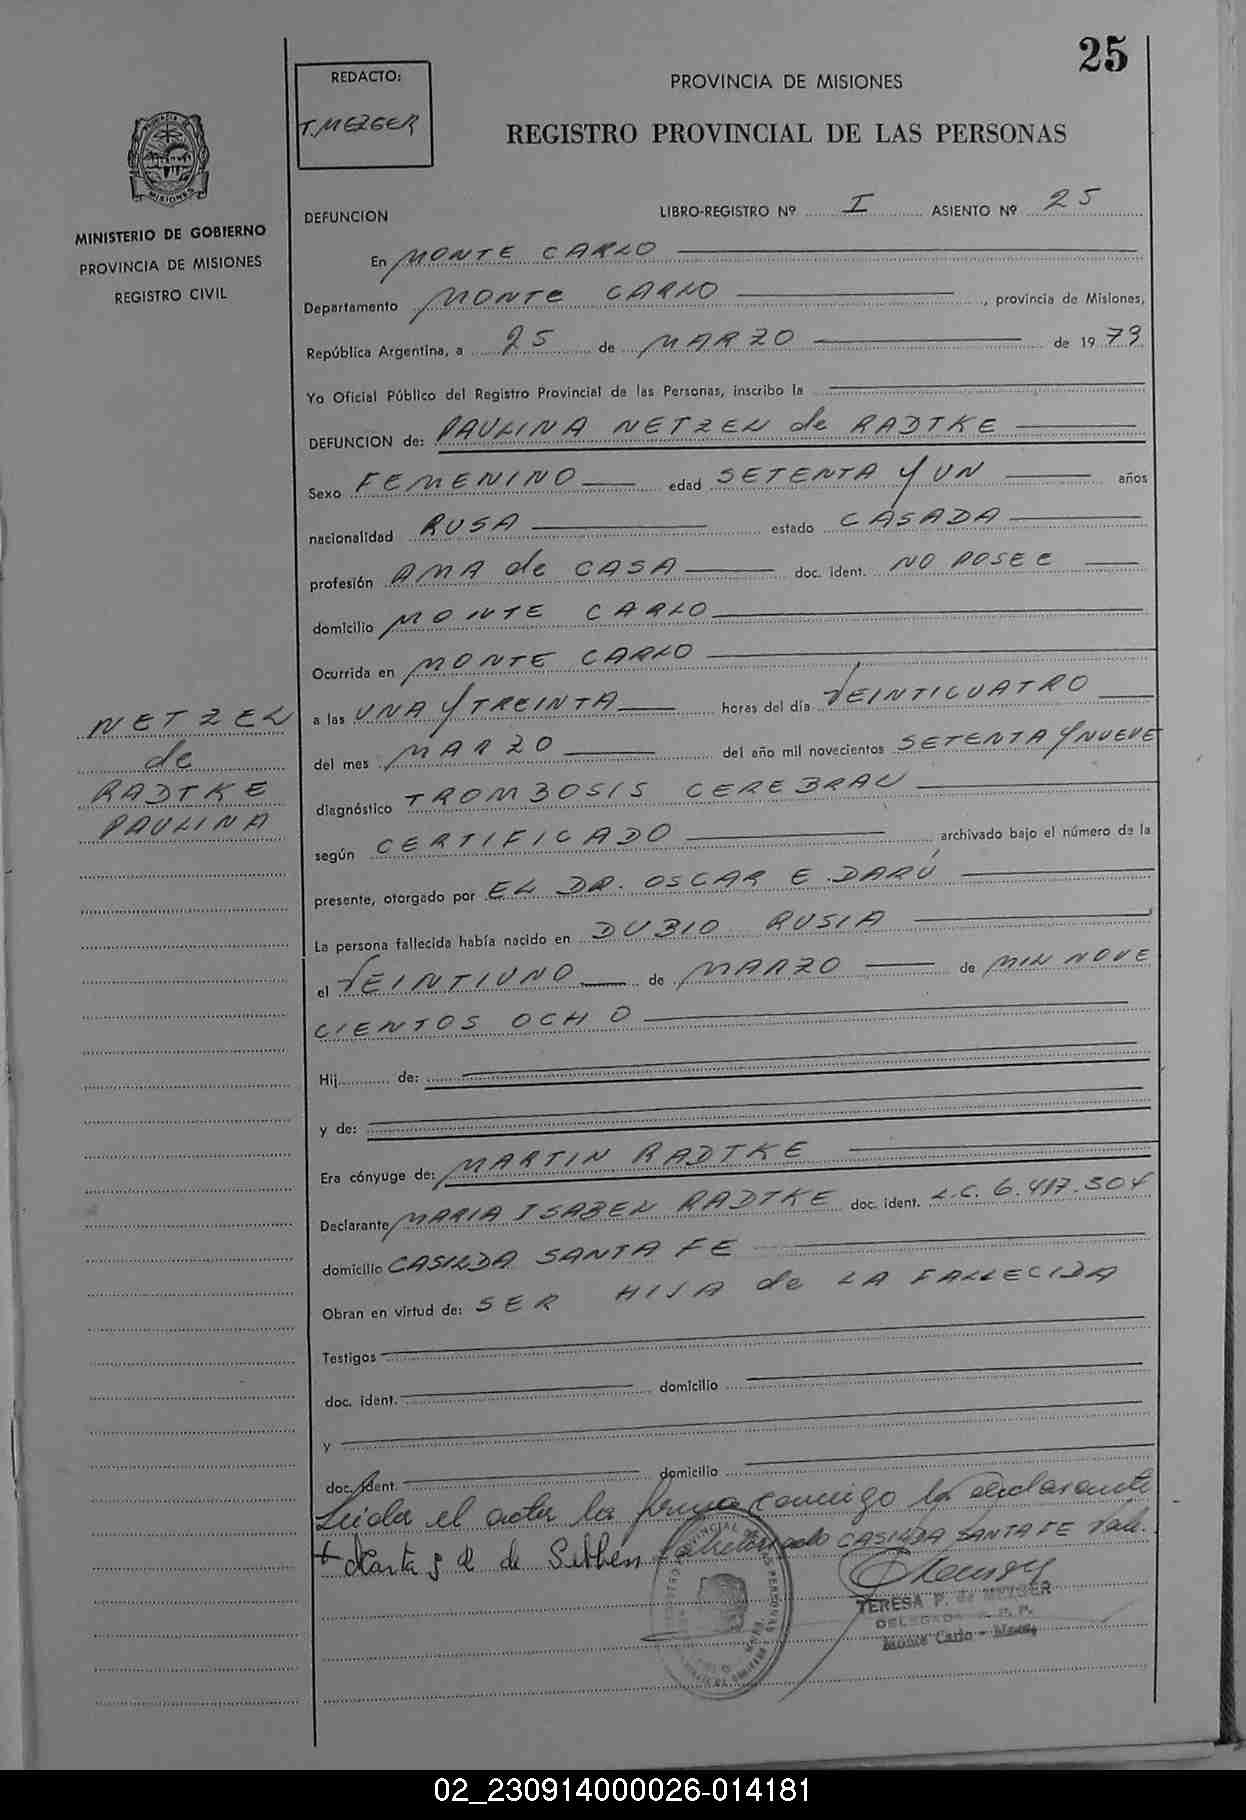 25
REDACTO:
T. MEZGER
PROVINCIA DE MISIONES
REGISTRO PROVINCIAL DE LAS PERSONAS
MISIONES
MINISTERIO DE GOBIERNO
PROVINCIA DE MISIONES
REGISTRO CIVIL
DEFUNCION LIBRO-REGISTRO Nº I ASIENTO Nº 25
En MONTE CARLO
Departamento MONTE CARLO, provincia de Misiones,
República Argentina, a 25 de MARZO de 1979
Yo Oficial Público del Registro Provincial de las Personas, inscribo la
DEFUNCION de: PAULINA NETZEL de RADTKE
Sexo FEMENINO edad SETENTA Y UN años
nacionalidad RUSA estado CASADA
profesión AMA de CASA doc. ident. NO POSEE
domicilio MONTE CARLO
Ocurrida en MONTE CARLO
a las UNA Y TREINTA horas del día VEINTICUATRO
del mes MARZO del año mil novecientos SETENTA Y NUEVE
diagnóstico TROMBOSIS CEREBRAL
según CERTIFICADO archivado bajo el número de la
presente, otorgado por EL DR. OSCAR E. DARÚ
La persona fallecida había nacido en DUBIO RUSIA
el VEINTIUNO de MARZO de MIL NOVE
CIENTOS OCHO
Hij de:
y de:
Era cónyuge de: MARTIN RADTKE
Declarante MARIA ISABEL RADTKE doc. ident. L.C. 6.417.304
domicilio CASILDA SANTA FE
Obran en virtud de: SER HIJA de LA FALLECIDA
Testigos
doc. ident. domicilio
y
doc. ident. domicilio
Leida el acta la firma conmigo la declarante
CASILDA SANTA FE Vale.
TERESA P. de MEZGER
DELEGADA R. P. P.
Monte Carlo - Mnes.
NETZEL
de
RADTKE
PAULINA
02_230914000026-014181